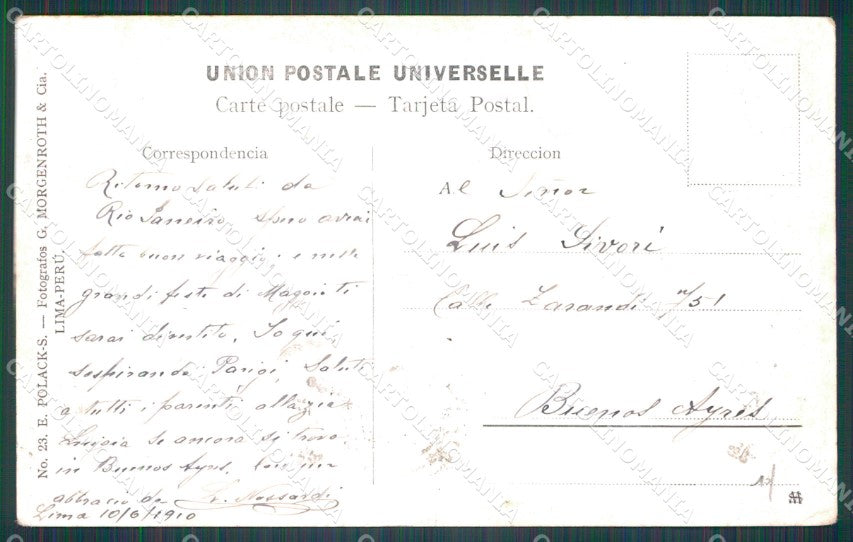 UNION POSTALE UNIVERSELLE
Carte postale — Tarjeta Postal.
Correspondencia
Direccion
No. 23. E. POLACK-S. — Fotografos G. MORGENROTH & Cia.
LIMA-PERÚ.
Ritorno saluti da
Rio Janeiro, spero avrai
fatto buon viaggio e nelle
grandi feste di Maggio ti
sarai divertito. Io qui
sospirando Parigi. Saluti
a tutti i parenti, alla zia
Luigia se ancora si trova
in Buenos Ayres. Con un
abbracio da L. Nossardi
Lima 10/6/1910
Al Señor
Luis Sivori
Calle Zarandi nº 51
Buenos Ayres
CARTOLINOMANIA